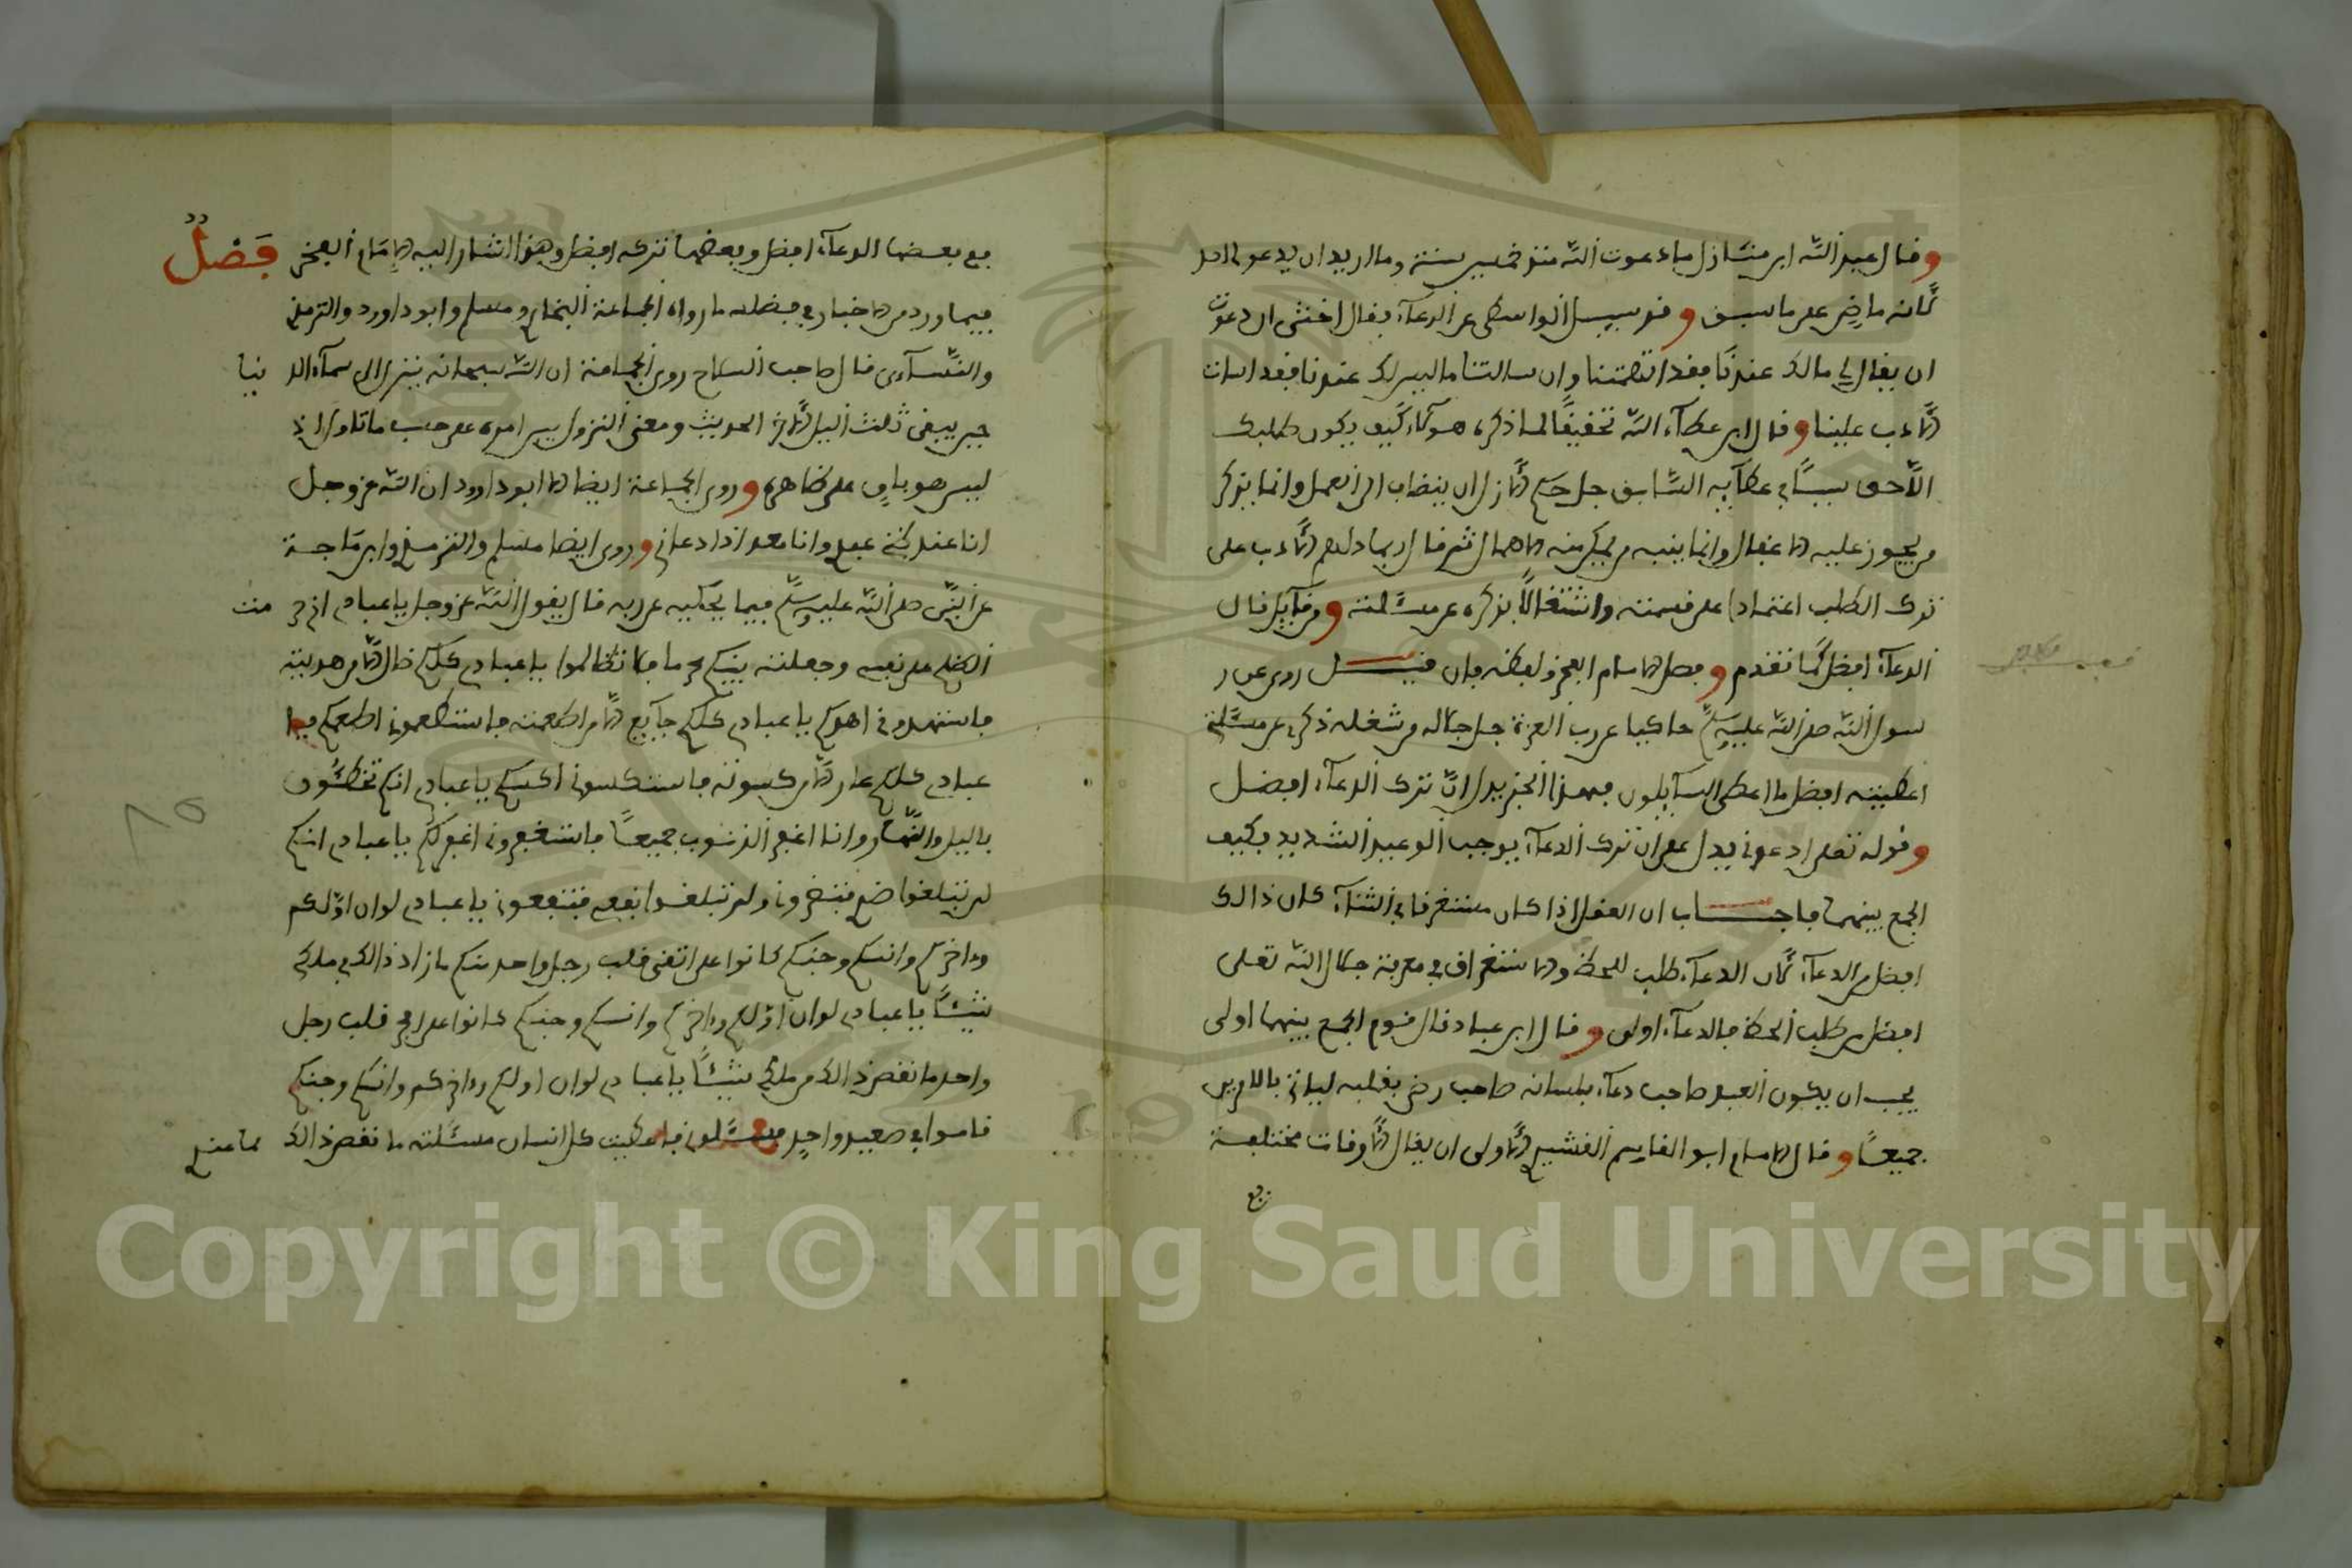 وقال عبد الله ابن منازل ما دعوت الله منذ خمسين سنة وما اريد ان يدعو لى احد
لأنه ماض على ما سبق وقد سيل الواسطى عن الدعآء فقال اخشى ان دعوت
ان يقال لى مالك عندنا فقد اتهمتنا وان سالتنا ما ليس لك عندنا فقد اسات
الأدب علينا وقال ابن عطآء الله تحقيقًا لما ذكره هولآء كيف يكون طلبك
اللّاحق سببًا في عطآيه السّابق جل حكم الأزل ان ينضاف الى العمل وانما يذكر
من يجوز عليه الاغفال وانما ينبه من يمكن منه الاهمال ثم قال ربما دلهم الأدب على
ترك الطلب اعتمادا على قسمته واشتغالًا بذكره عن مسئلته ومن قآيل قال
الدعآء افضل كما تقدم وفصل الامام الفخر ولفظه فان قيل روى عن ر
سول الله صلى الله عليه وسلم حاكيا عن رب العزة جل جلاله من شغله ذكرى عن مسئلتي
اعطيته افضل ما اعطى السآيلون فهذا الخبر يدل انّ ترك الدعآء افضل
وقوله تعلى ادعوني يدل على ان ترك الدعآء يوجب الوعيد الشديد فكيف
الجمع بينهما فاجاب ان العقل اذا كان مستغرقا في الثنآء كان ذالك
افضل من الدعآء لأن الدعآء طلب للحظ والاستغراق في معرفة جلال الله تعلى
افضل من طلب الحظ فالدعآء اولى وقال ابن عباد قال قوم الجمع بينهما اولى
يجب ان يكون العبد صاحب دعآء بلسانه صاحب رضى بقلبه لياتي بالامرين
جميعًا وقال الامام ابو القاسم القشيري الأولى ان يقال الأوقات مختلفة
فع
فع بعضها الدعآء افضل وبعضها تركه افضل وهذا اشار اليه الامام الفخر فَصْلٌ
فيما ورد من الاخبار في فضله ما رواه الجماعة البخاري ومسلم وابو داوود والترمذي
والنّسآءى قال صاحب السلاح روى الجماعة ان الله سبحانه ينزل الى سمآء الدنيا
حين يبقى ثلث اليل الأخر الحديث ومعنى النزول سير امره على حسب ما تاول اذ
ليس هو باق على ظاهره وروى الجماعة ايضا الا ابو داوود ان الله عز وجل
انا عند ظن عبدي وانا معه اذا دعاني وروى ايضا مسلم والترمذي وابن ماجة
عن النّبى صلى الله عليه وسلم فيما يحكيه عن ربه قال يقول الله عز وجل يا عبادي اني حرمت
الظلم على نفسي وجعلته بينكم محرما فلا تظالموا يا عبادي كلكم ضال الّا من هديته
فاستهدوني اهدكم يا عبادي كلكم جآيع الّا من اطعمته فاستطعموني اطعمكم يا
عبادي كلكم عار الّا من كسوته فاستكسوني اكسكم يا عبادي انكم تخطئون
باليل والنّهار وانا اغفر الذنوب جميعًا فاستغفروني اغفر لكم يا عبادي انكم
لن تبلغوا ضري فتضروني ولن تبلغوا نفعي فتنفعوني يا عبادي لو ان اوّلكم
وءاخركم وانسكم وجنكم كانوا على اتقى قلب رجل واحد منكم ما زاد ذالك في ملكي
شيئًا يا عبادي لو ان اوّلكم وءاخركم وانسكم وجنكم كانوا على افجر قلب رجل
واحد ما نقص ذالك من ملكي شيئًا يا عبادي لو ان اولكم وءاخركم وانسكم وجنكم
قاموا في صعيد واحد فسئلوني فاعطيت كل انسان مسئلته ما نقص ذالك مما عندي
Copyright © King Saud University